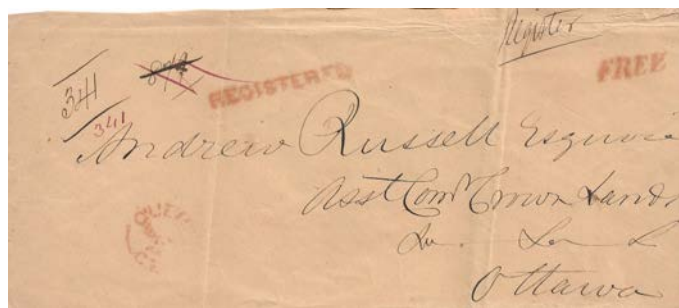 Register
341
REGISTERED
FREE
341
Andrew Russell Esquire
Asst Comr Crown Lands
Ottawa